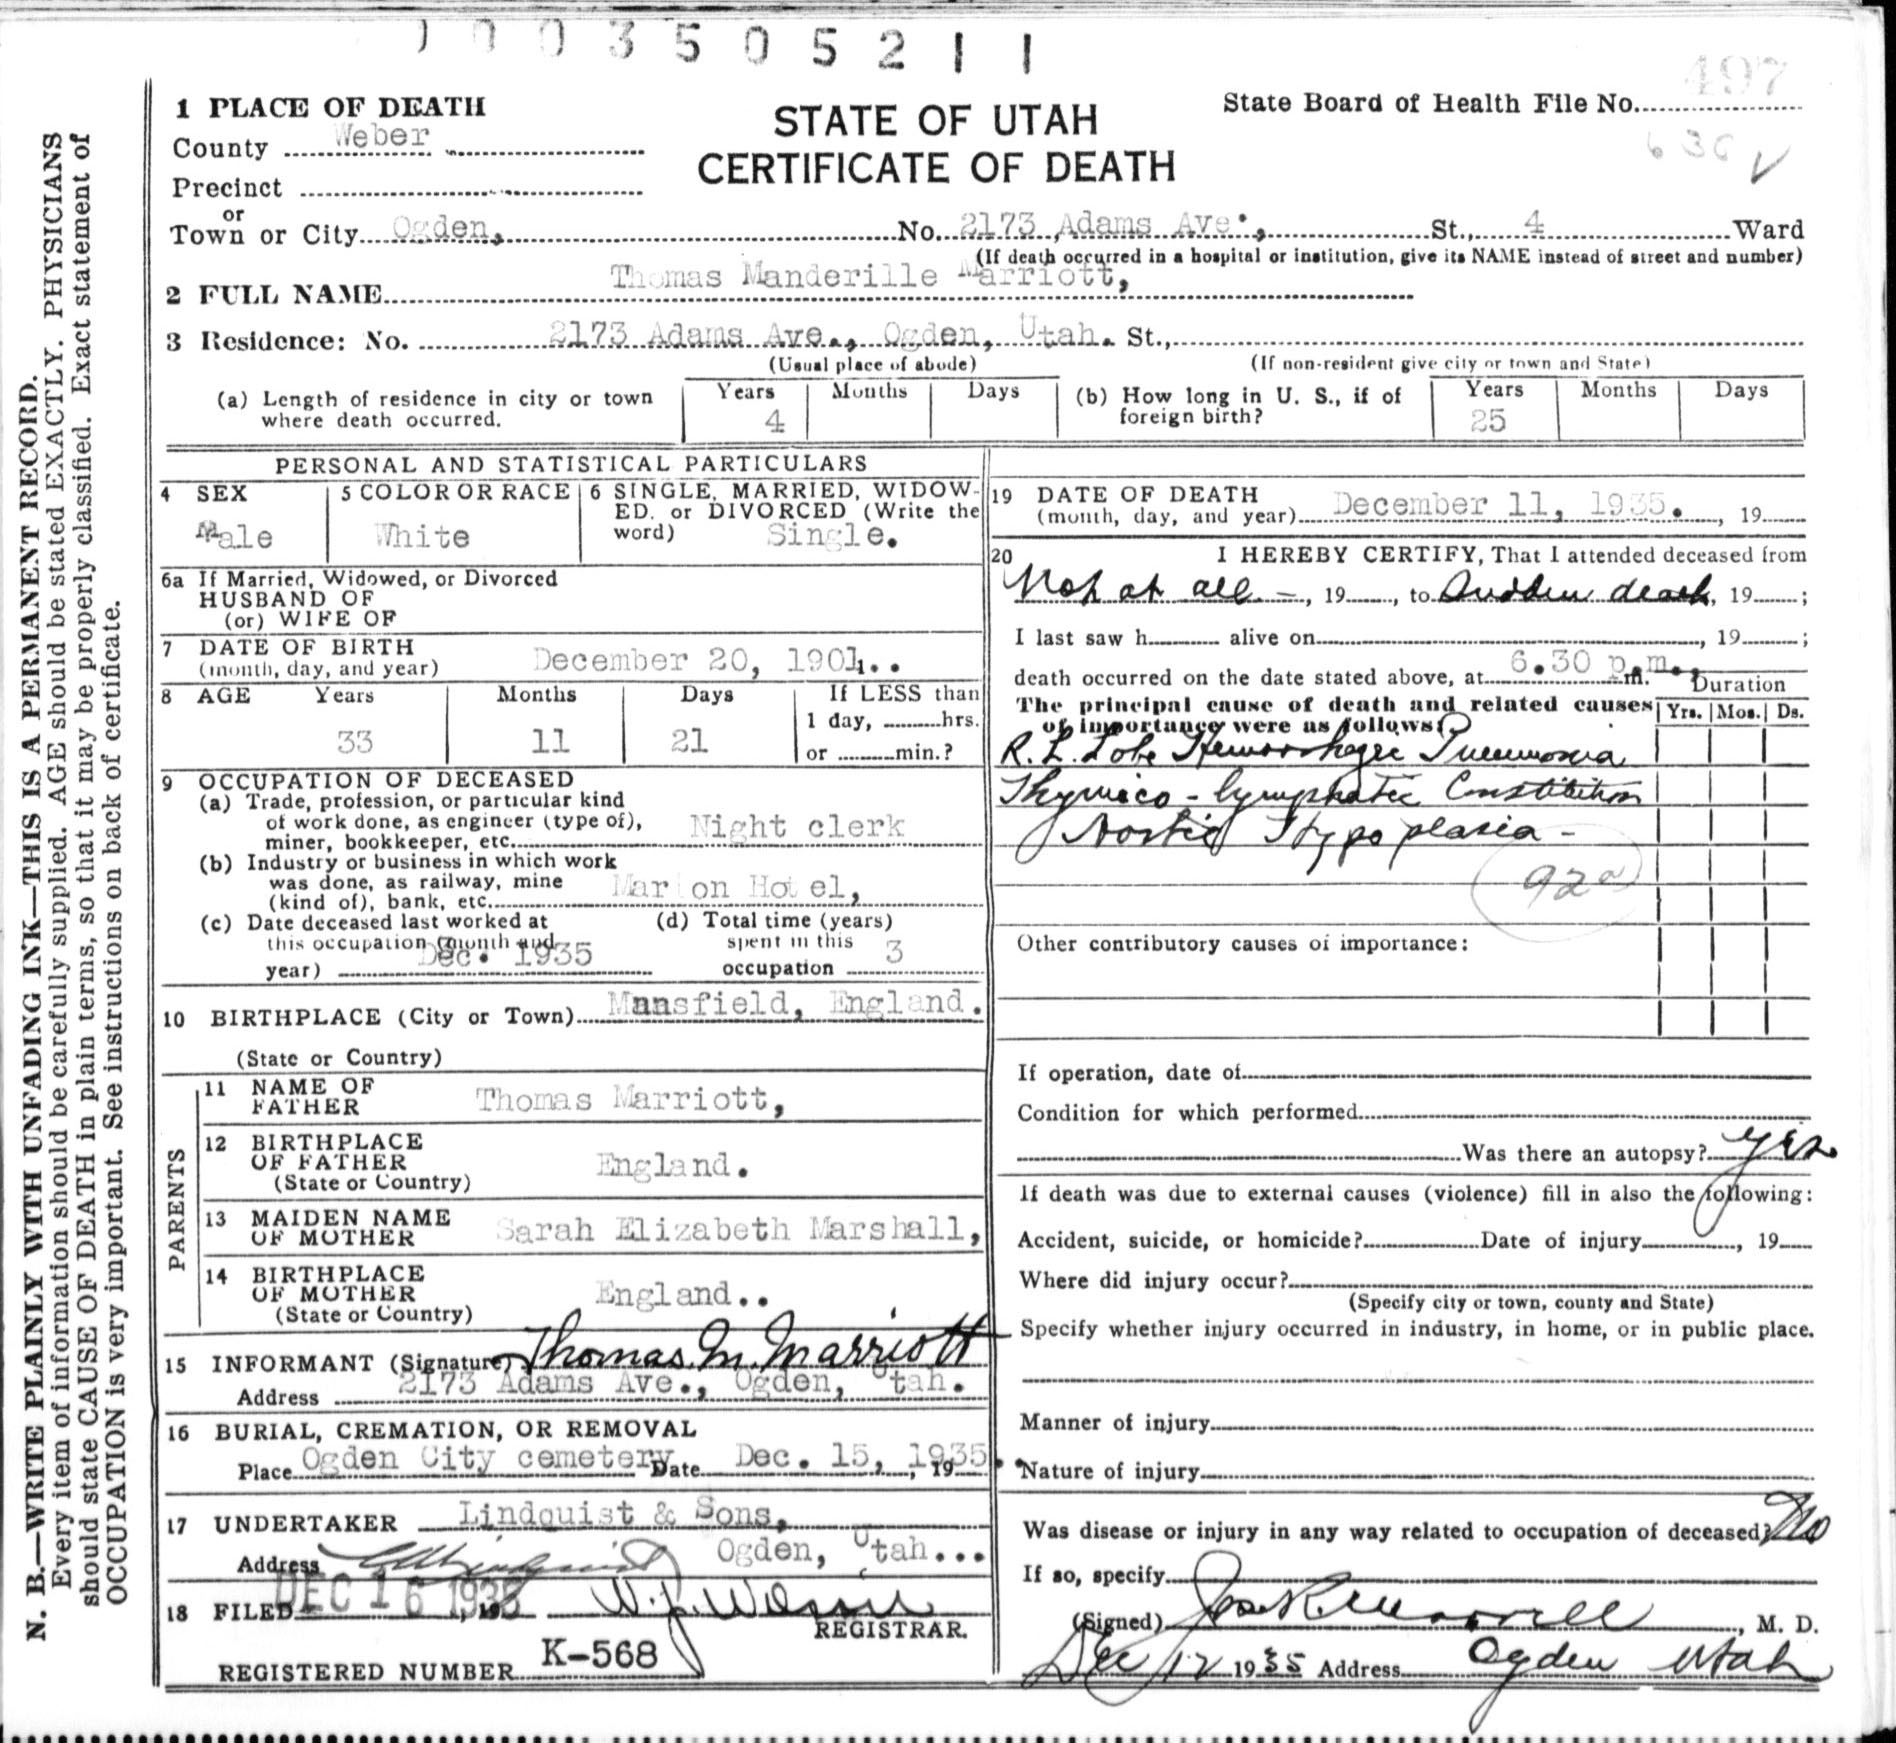 1003505211
497
1 PLACE OF DEATH
STATE OF UTAH
CERTIFICATE OF DEATH
State Board of Health File No.
County Weber
Precinct
or
Town or City Ogden, No. 2173 Adams Ave., St., 4 Ward
(If death occurred in a hospital or institution, give its NAME instead of street and number)
2 FULL NAME Thomas Manderille Marriott,
3 Residence: No. 2173 Adams Ave., Ogden, Utah. St.,
(Usual place of abode) (If non-resident give city or town and State)
(a) Length of residence in city or town where death occurred. Years 4 Months Days
(b) How long in U. S., if of foreign birth? Years 25 Months Days
PERSONAL AND STATISTICAL PARTICULARS
4 SEX Male
5 COLOR OR RACE White
6 SINGLE, MARRIED, WIDOW-
ED, or DIVORCED (Write the
word) Single.
6a If Married, Widowed, or Divorced
HUSBAND OF
(or) WIFE OF
7 DATE OF BIRTH
(month, day, and year) December 20, 1901..
8 AGE Years Months Days If LESS than
33 11 21 1 day, hrs.
or min.?
9 OCCUPATION OF DECEASED
(a) Trade, profession, or particular kind
of work done, as engineer (type of),
miner, bookkeeper, etc. Night clerk
(b) Industry or business in which work
was done, as railway, mine
(kind of), bank, etc. Marion Hotel,
(c) Date deceased last worked at
this occupation (month and
year) Dec. 1935
(d) Total time (years)
spent in this
occupation 3
10 BIRTHPLACE (City or Town) Mansfield, England.
(State or Country)
PARENTS
11 NAME OF
FATHER Thomas Marriott,
12 BIRTHPLACE
OF FATHER
(State or Country) England.
13 MAIDEN NAME
OF MOTHER Sarah Elizabeth Marshall,
14 BIRTHPLACE
OF MOTHER
(State or Country) England..
15 INFORMANT (Signature) Thomas M. Marriott
Address 2173 Adams Ave., Ogden, Utah.
16 BURIAL, CREMATION, OR REMOVAL
Place Ogden City cemetery Date Dec. 15, 1935.
17 UNDERTAKER Lindquist & Sons,
Address Ogden, Utah...
18 FILED DEC 16 1935 W. J. Wilson
REGISTRAR.
REGISTERED NUMBER K-568
19 DATE OF DEATH
(month, day, and year) December 11, 1935. , 19
20 I HEREBY CERTIFY, That I attended deceased from
Not at all - , 19 , to Sudden death , 19 ;
I last saw h alive on , 19 ;
death occurred on the date stated above, at 6.30 p.m. m.
Duration
The principal cause of death and related causes
of importance were as follows: Yrs. Mos. Ds.
R. L. Lobe Hemorrhagic Pneumonia
Thymico-lymphatic Constitution
Aortic Hypoplasia -
92a
Other contributory causes of importance:
If operation, date of
Condition for which performed
Was there an autopsy? yes
If death was due to external causes (violence) fill in also the following:
Accident, suicide, or homicide? Date of injury , 19
Where did injury occur?
(Specify city or town, county and State)
Specify whether injury occurred in industry, in home, or in public place.
Manner of injury
Nature of injury
Was disease or injury in any way related to occupation of deceased? No
If so, specify
(Signed) Jno. R. Morrell , M. D.
Dec 12 1935 Address Ogden Utah
N. B.—WRITE PLAINLY WITH UNFADING INK—THIS IS A PERMANENT RECORD.
Every item of information should be carefully supplied. AGE should be stated EXACTLY. PHYSICIANS
should state CAUSE OF DEATH in plain terms, so that it may be properly classified. Exact statement of
OCCUPATION is very important. See instructions on back of certificate.